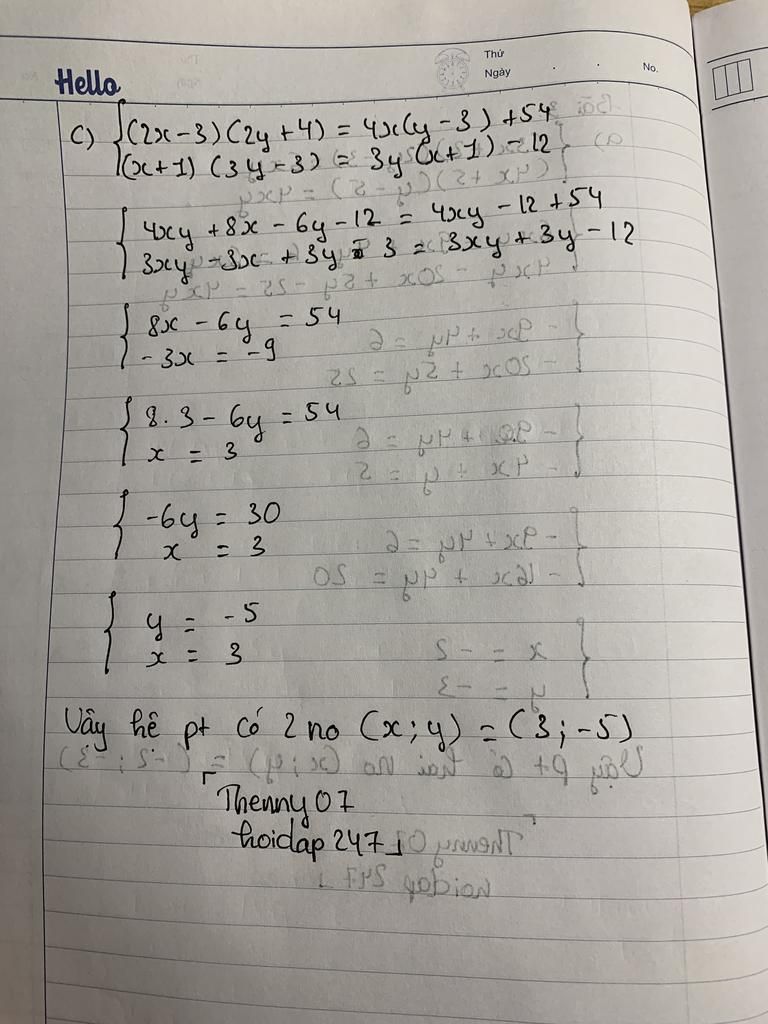 Hello
Thứ
Ngày . . No.
c) {(2x-3)(2y+4) = 4x(y-3) +54
(x+1) (3y-3) = 3y(x+1) -12
{4xy +8x - 6y -12 = 4xy -12 +54
3xy -3x +3y - 3 = 3xy + 3y -12
{8x - 6y = 54
-3x = -9
{8.3 - 6y = 54
x = 3
{-6y = 30
x = 3
{y = -5
x = 3
Vậy hê pt có 2 no (x;y) = (3;-5)
「Thenny07
hoidap 247」